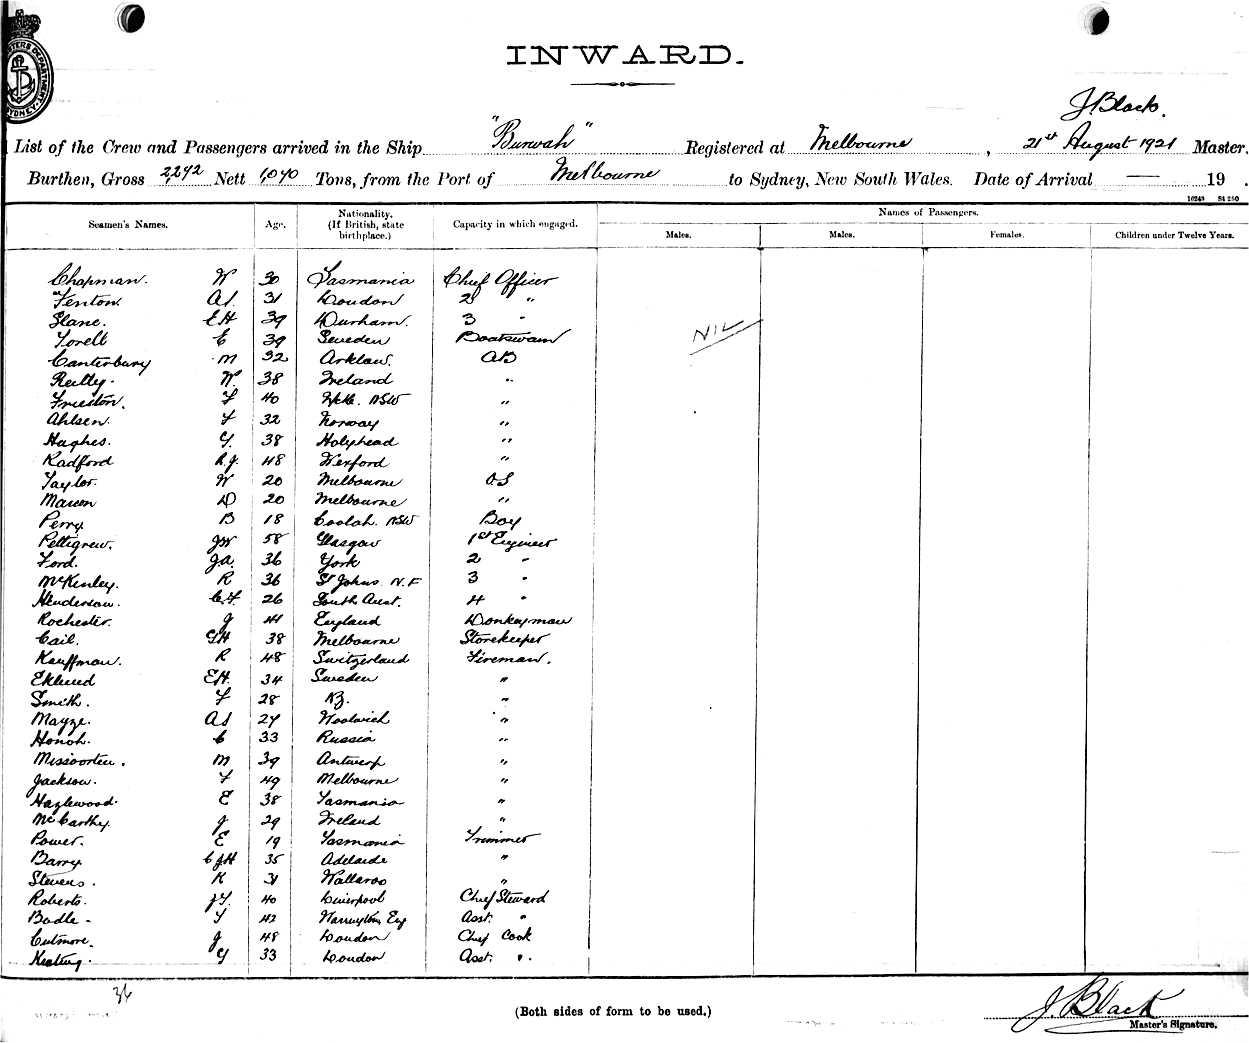 INWARD.
J. Black.
List of the Crew and Passengers arrived in the Ship "Burwah" Registered at Melbourne, 21st August 1921 Master,
Burthen, Gross 2,242 Nett 1,040 Tons, from the Port of Melbourne to Sydney, New South Wales. Date of Arrival — 19 .
Seamen's Names. Age. Nationality. (If British, state birthplace.) Capacity in which engaged. Names of Passengers.
Males. Males. Females. Children under Twelve Years.
NIL
Chapman. W 30 Tasmania Chief Officer
Fenton AJ. 31 London 2 "
Slane. EH 39 Durham. 3 "
Torell C 39 Sweden Boatswain
Canterbury M 32 Arklow. AB
Reilly. W. 38 Ireland "
F 40 NSW "
Ahlsen F 32 Norway "
Hughes. G. 38 Holyhead "
Radford R.J. 48 Wexford "
Taylor. W 20 Melbourne OS
D 20 Melbourne "
Perry B 18 Coolah. NSW Boy
Pettigrew. JW 58 Glasgow 1st Engineer
Ford. JA. 36 York 2 "
McKinley. R 36 St Johns N.F 3 "
Henderson. 26 South Aust. 4 "
Rochester. J 44 England Donkeyman
Cail. GH 38 Melbourne Storekeeper
Kauffman. R 48 Switzerland Fireman.
Eklund EH. 34 Sweden "
Smith. F 28 NZ. "
Mayze. AJ 27 Woolwich "
Honoh. C 33 Russia "
M 39 Antwerp "
Jackson. F 49 Melbourne "
Hazlewood. E 38 Tasmania "
McCarthy. J 29 Ireland "
Power. E 19 Tasmania Trimmer
Barry CJH 35 Adelaide "
Stevens. K 31 Wallaroo "
Roberts. JF. 40 Liverpool Chief Steward
Badle - F 42 Warrington, Eng Asst. "
Cutmore. J 48 London Chief Cook
Keating. G 33 London Asst. "
36
(Both sides of form to be used.)
J. Black
Master's Signature.